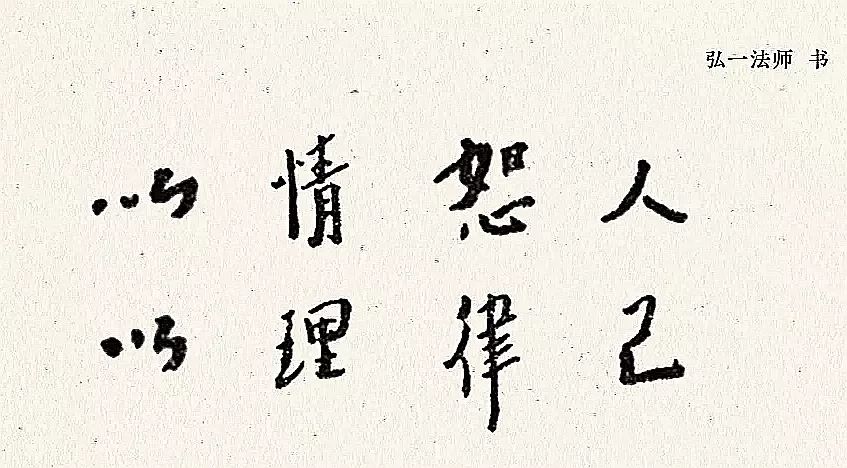 弘一法师 书
以情恕人
以理律己